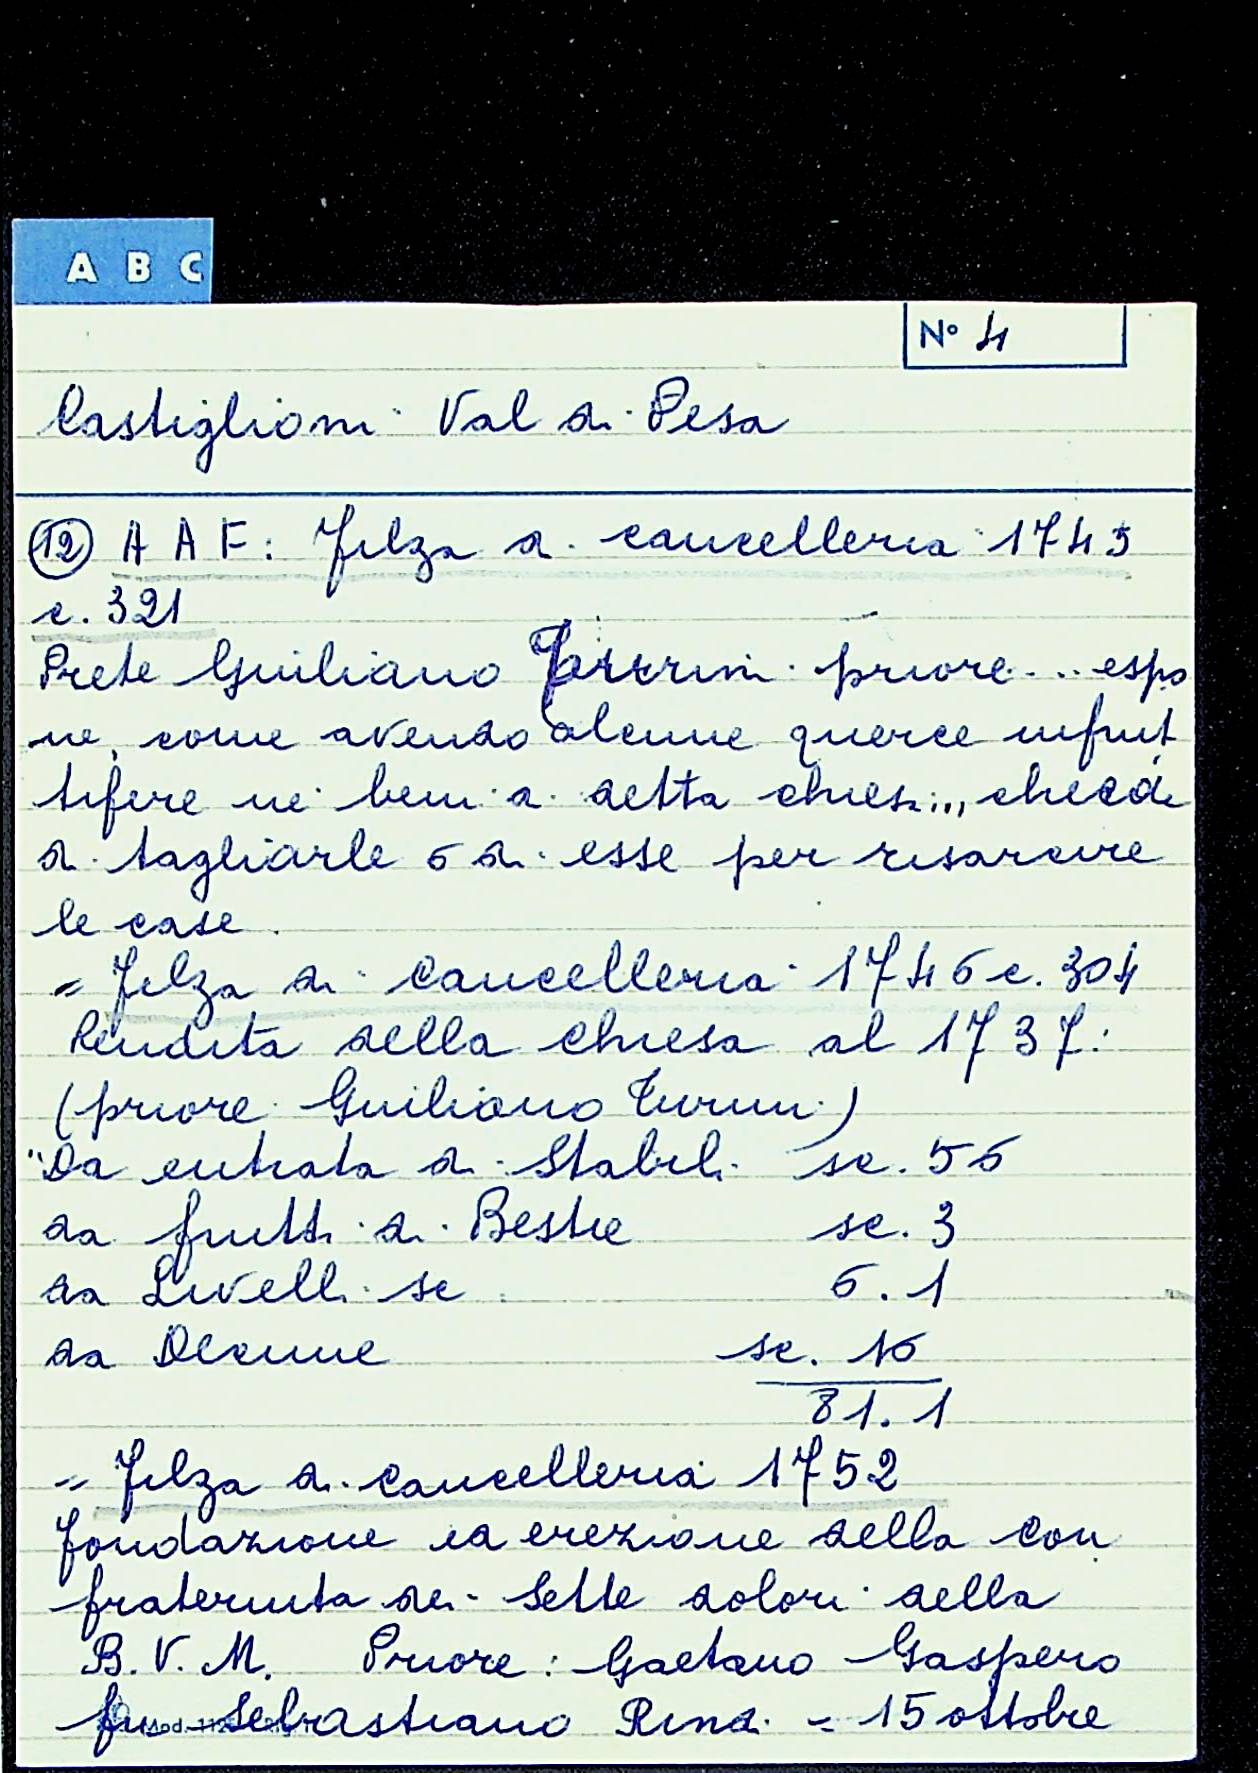 A B C
N° 4
Castiglioni Val di Pesa
12 A A F: Filza di cancelleria 1743
c. 321
Prete Giuliano priore... espo
ne, come avendo alcune querce infrut
tifere ne' beni di detta chiesa..., chiede
di tagliarle 6 di esse per risarcire
le case.
= Filza di cancelleria 1746 c. 304
Rendita della chiesa al 1737:
(priore Giuliano Turini)
"Da entrata di Stabili sc. 56
da frutti di Bestie sc. 3
da Livelli sc 6.1
da Decime sc. 16
81.1
= Filza di cancelleria 1752
fondazione ed erezione della con
fraternita dei Sette dolori della
B.V.M. Priore: Gaetano Gaspero
fu Sebastiano Rindi = 15 ottobre